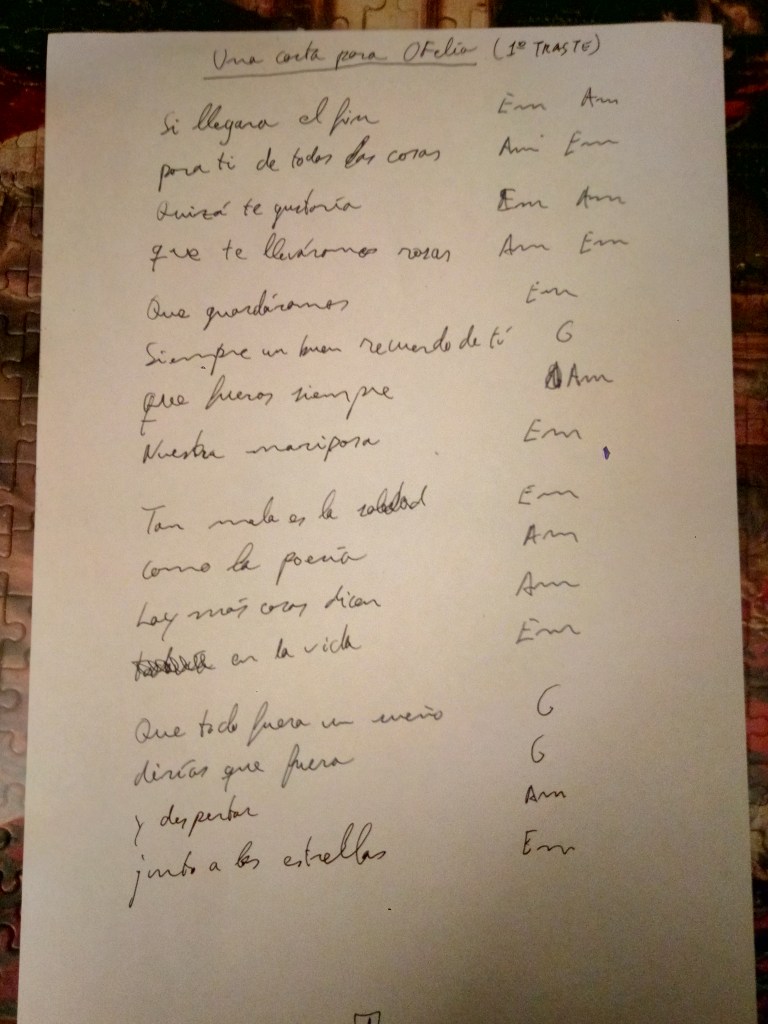 Una carta para Ofelia (1º TRASTE)
Si llegara el fin Em Am
para ti de todas las cosas Am Em
Quizá te gustaría Em Am
que te lleváramos rosas Am Em
Que guardáramos Em
Siempre un buen recuerdo de tí G
que fueras siempre Am
Nuestra mariposa Em
Tan mala es la soledad Em
como la poesía Am
hay más cosas dicen Am
en la vida Em
Que todo fuera un sueño G
dirías que fuera G
y despertar Am
junto a las estrellas Em
1